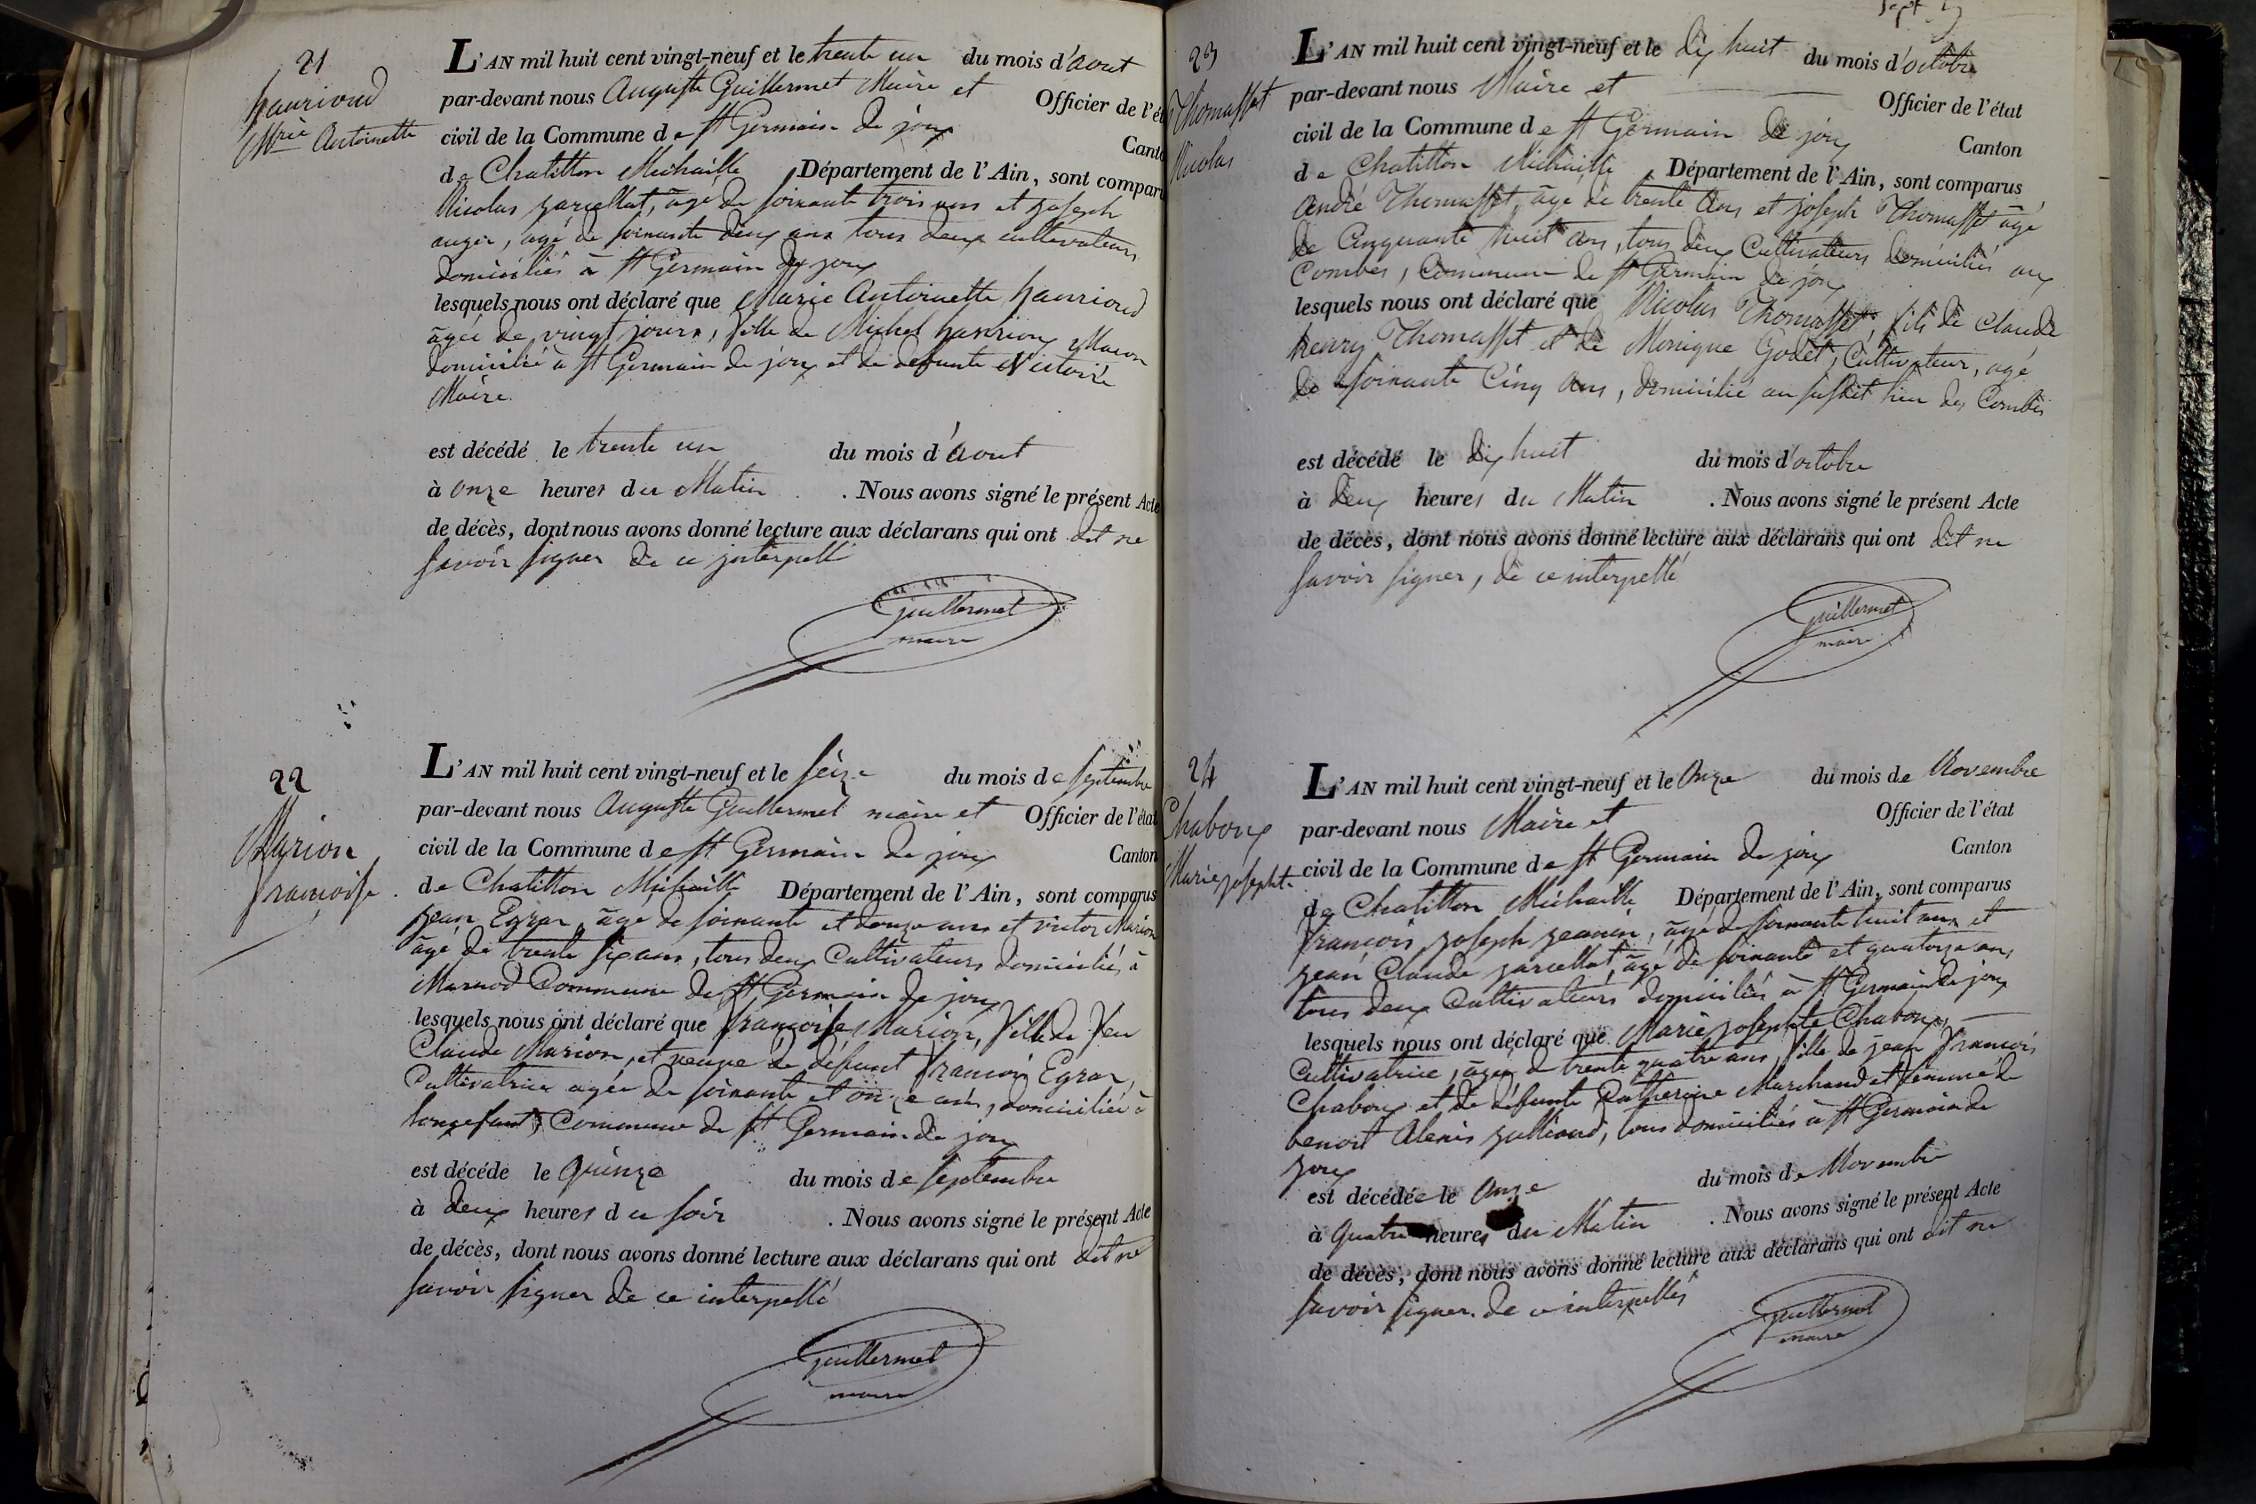 21
hanrioud
Mrie Antoinette
L'AN mil huit cent vingt-neuf et le trente un du mois d'aout
par-devant nous Auguste Guillermet Maire et Officier de l'ét
civil de la Commune de St Germain de joux Canto
de Chatillon Michaille Département de l'Ain, sont comparu
Nicolas jarcellat, âgé de soixante trois ans et joseph
auger, agé de soixante deux ans tous deux cultivateurs
domiciliés à St Germain de joux
lesquels nous ont déclaré que Marie Antoinette hanrioud
âgée de vingt jours, fille de Michel hanrioux Macon
domicilié à St Germain de joux et de défunte Victoire
Maire.
est décédé le trente un du mois d'aout
à onze heures du Matin . Nous avons signé le présent Acte
de décès, dont nous avons donné lecture aux déclarans qui ont dit ne
savoir signer de ce interpellé
Guillermet
maire
22
Marion
françoise
L'AN mil huit cent vingt-neuf et le seize du mois de septembre
par-devant nous Auguste Guillermet maire et Officier de l'état
civil de la Commune de St Germain de joux Canton
de Chatillon Michaille Département de l'Ain, sont comparus
jean Egraz, âgé de soixante et douze ans et victor Marion
âgé de trente six ans, tous deux Cultivateurs domiciliés à
Marnod Commune de St Germain de joux
lesquels nous ont déclaré que françoise Marion, fille de feu
Claude Marion, et veuve de défunt françois Egraz,
Cultivatrice agée de soixante et onze ans, domiciliée à
longefand, Commune de St Germain de joux
est décéde le quinze du mois de septembre
à deux heures du soir . Nous avons signé le présent Acte
de décès, dont nous avons donné lecture aux déclarans qui ont dit ne
savoir signer de ce interpellé
Guillermet
maire
Sept
23
Thomasset
Nicolas
L'AN mil huit cent vingt-neuf et le dix huit du mois d'octobre
par-devant nous Maire et Officier de l'état
civil de la Commune de St Germain de joux Canton
de Chatillon Michaille Département de l'Ain, sont comparus
André Thomasset, âgé de trente ans et joseph Thomasset âgé
de Cinquante huit ans, tous deux Cultivateurs domiciliés aux
Combes, Commune de St Germain de joux
lesquels nous ont déclaré que Nicolas Thomasset, fils de Claude
henry Thomasset et de Monique Godet, Cultivateur, agé
de soixante Cinq ans, domicilié au susdit lieu des Combes
est décédé le dix huit du mois d'octobre
à deux heures du Matin . Nous avons signé le présent Acte
de décès, dont nous avons donné lecture aux déclarans qui ont dit ne
savoir signer, de ce interpellé
Guillermet
maire
24
Chaboux
Marie josephte
L'AN mil huit cent vingt-neuf et le Onze du mois de Novembre
par-devant nous Maire et Officier de l'état
civil de la Commune de St Germain de joux Canton
de Chatillon Michaille Département de l'Ain, sont comparus
françois joseph jeanin, âgé de soixante huit ans et
jean Claude jarcellat, âgé de soixante et quatorze ans,
tous deux Cultivateurs domiciliés à St Germain de joux
lesquels nous ont déclaré que Marie josephte Chaboux,
Cultivatrice, âgée de trente quatre ans, fille de jean françois
Chaboux et de défunte Catherine Marchand et femme de
benoit Alexis jullioud, tous domiciliés à St Germain de
joux
est décédée le onze du mois de Novembre
à quatre heures du Matin . Nous avons signé le présent Acte
de décès, dont nous avons donné lecture aux déclarans qui ont dit ne
savoir signer. de ce interpellés
Guillermet
maire